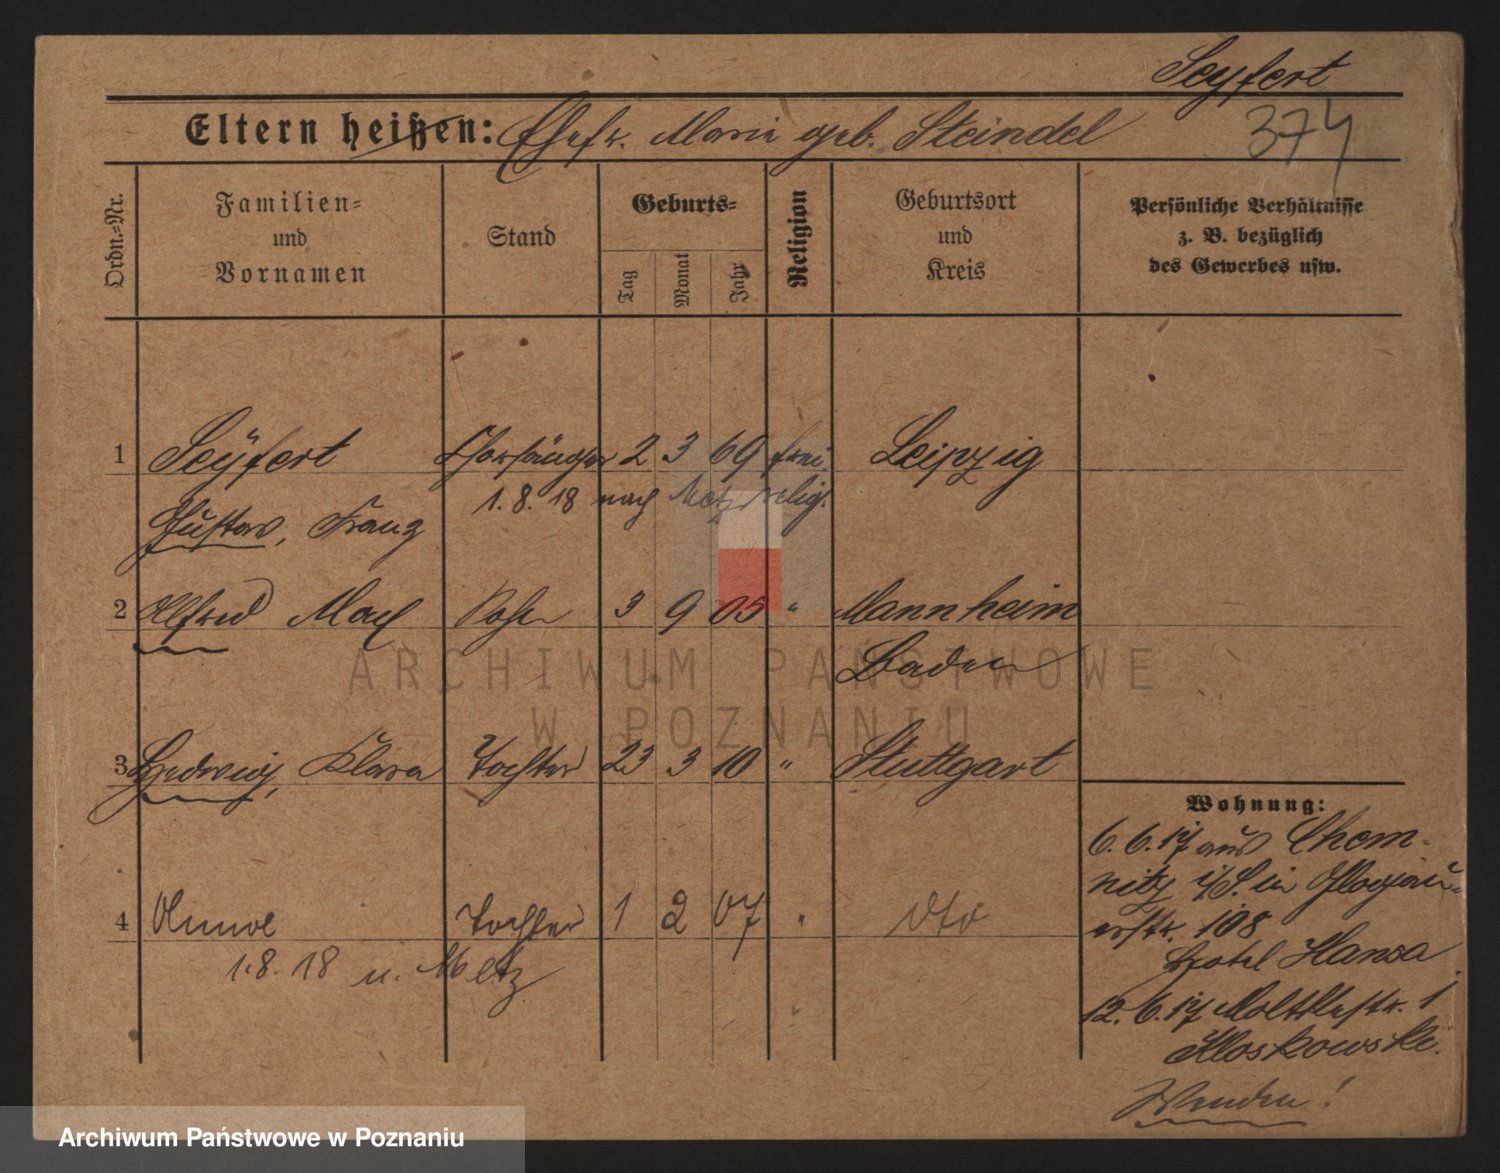 Seyfert
Eltern heißen: Ehefr. Marie geb. Steindel
374
Ordn.-Nr.
Familien-
und
Vornamen
Stand
Geburts-
Tag
Monat
Jahr
Religion
Geburtsort
und
Kreis
Persönliche Verhältnisse
z. B. bezüglich
des Gewerbes usw.
1 Seyfert Chorsänger 2 3 69 frei Leipzig
1. 8. 18 nach Metz relig.
Gustav, Franz
2 Alfred Max Sohn 3 9 05 " Mannheim
Baden
3 Hedwig, Klara Tochter 23 3 10 " Stuttgart
4 Tochter 1 2 07 " dto
1.8.18 n. Metz
Wohnung:
6.6.17 aus Chem-
nitz i/S. in Glogau-
erstr. 108
Hotel Hansa
12.6.17 Moltkestr. 1
Kloskowski.
Wenden!
ARCHIWUM PAŃSTWOWE
W POZNANIU
Archiwum Państwowe w Poznaniu